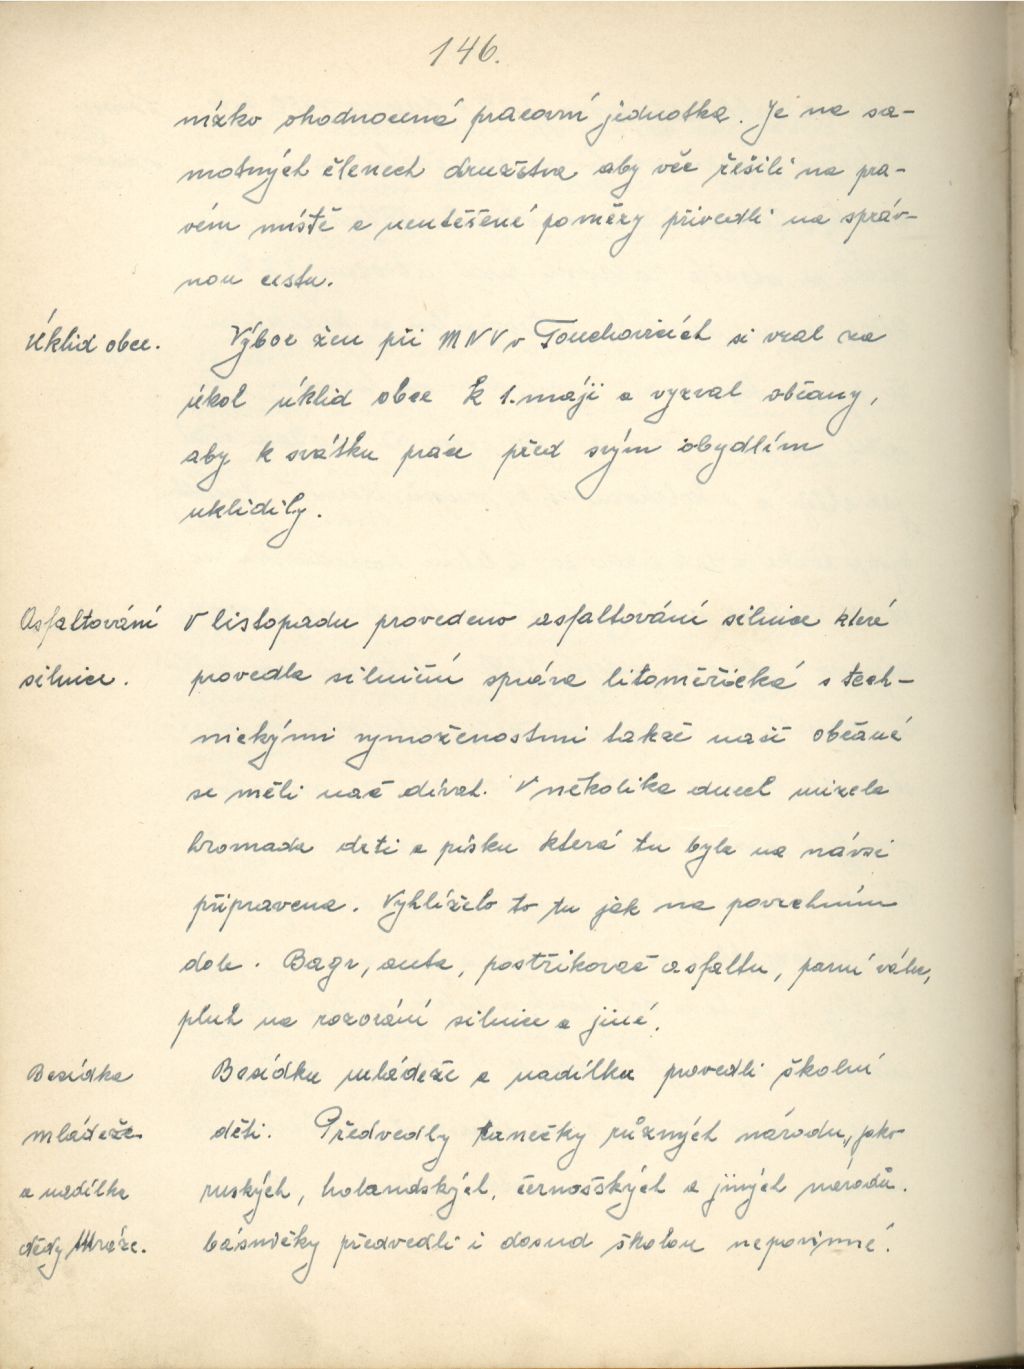 146.
nízko ohodnocená pracovní jednotka. Je na sa-
motných členech družstva aby věc řešili na pra-
vém místě a neutěšené poměry přivedli na správ-
nou cestu.
Úklid obce. Výbor žen při MNV v Touchovicích si vzal za
úkol úklid obce k 1. máji a vyzval občany,
aby k svátku práce před svým obydlím
uklidily.
Asfaltování V listopadu provedeno asfaltování silnice které
silnice. provedla silniční správa litoměřická s tech-
nickými vymoženostmi takže naši občané
se měli nač dívat. V několika dnech mizela
hromada deti a písku která tu byla na návsi
připravena. Vyhlíželo to tu jak na povrchním
dole. Bagr, auta, postřikovač asfaltu, parní válec,
pluh na rozorání silnice a jiné.
Besídka Besídku mládeže a nadílku provedli školní
mládeže děti. Předvedly tanečky různých národu, jako
a nadílka ruských, holandských, černošských a jiných národů.
dědy Mráze. básničky předvedli i dosud školou nepovinné.